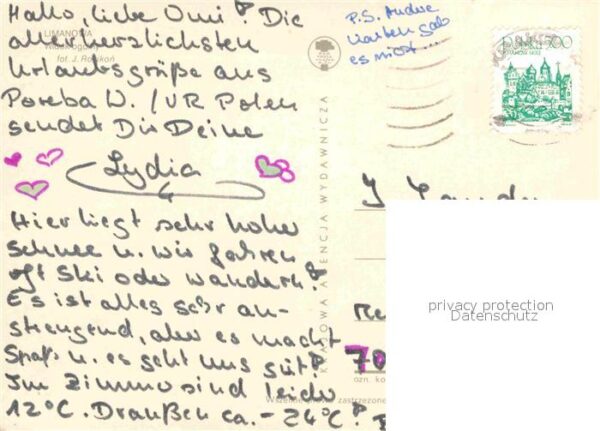 Hallo, liebe Omi! Die
LIMANOWA
allerherzlichsten
fot. J.
Urlaubsgrüße aus
Poreba W. / VR Polen
sendet Dir Deine
Lydia
Hier liegt sehr hoher
Schnee u. wir fahren
oft Ski oder wandern!
Es ist alles sehr an-
strengend, aber es macht
Spaß u. es geht uns gut!
Im Zimmer sind leider
12°C. Draußen ca. -24°C!
P.S. Andre
Karten gab
es nicht...
KRAJOWA AGENCJA WYDAWNICZA
500
70
ozn. ko
Wszelkie prawa zastrzeżone
privacy protection
Datenschutz